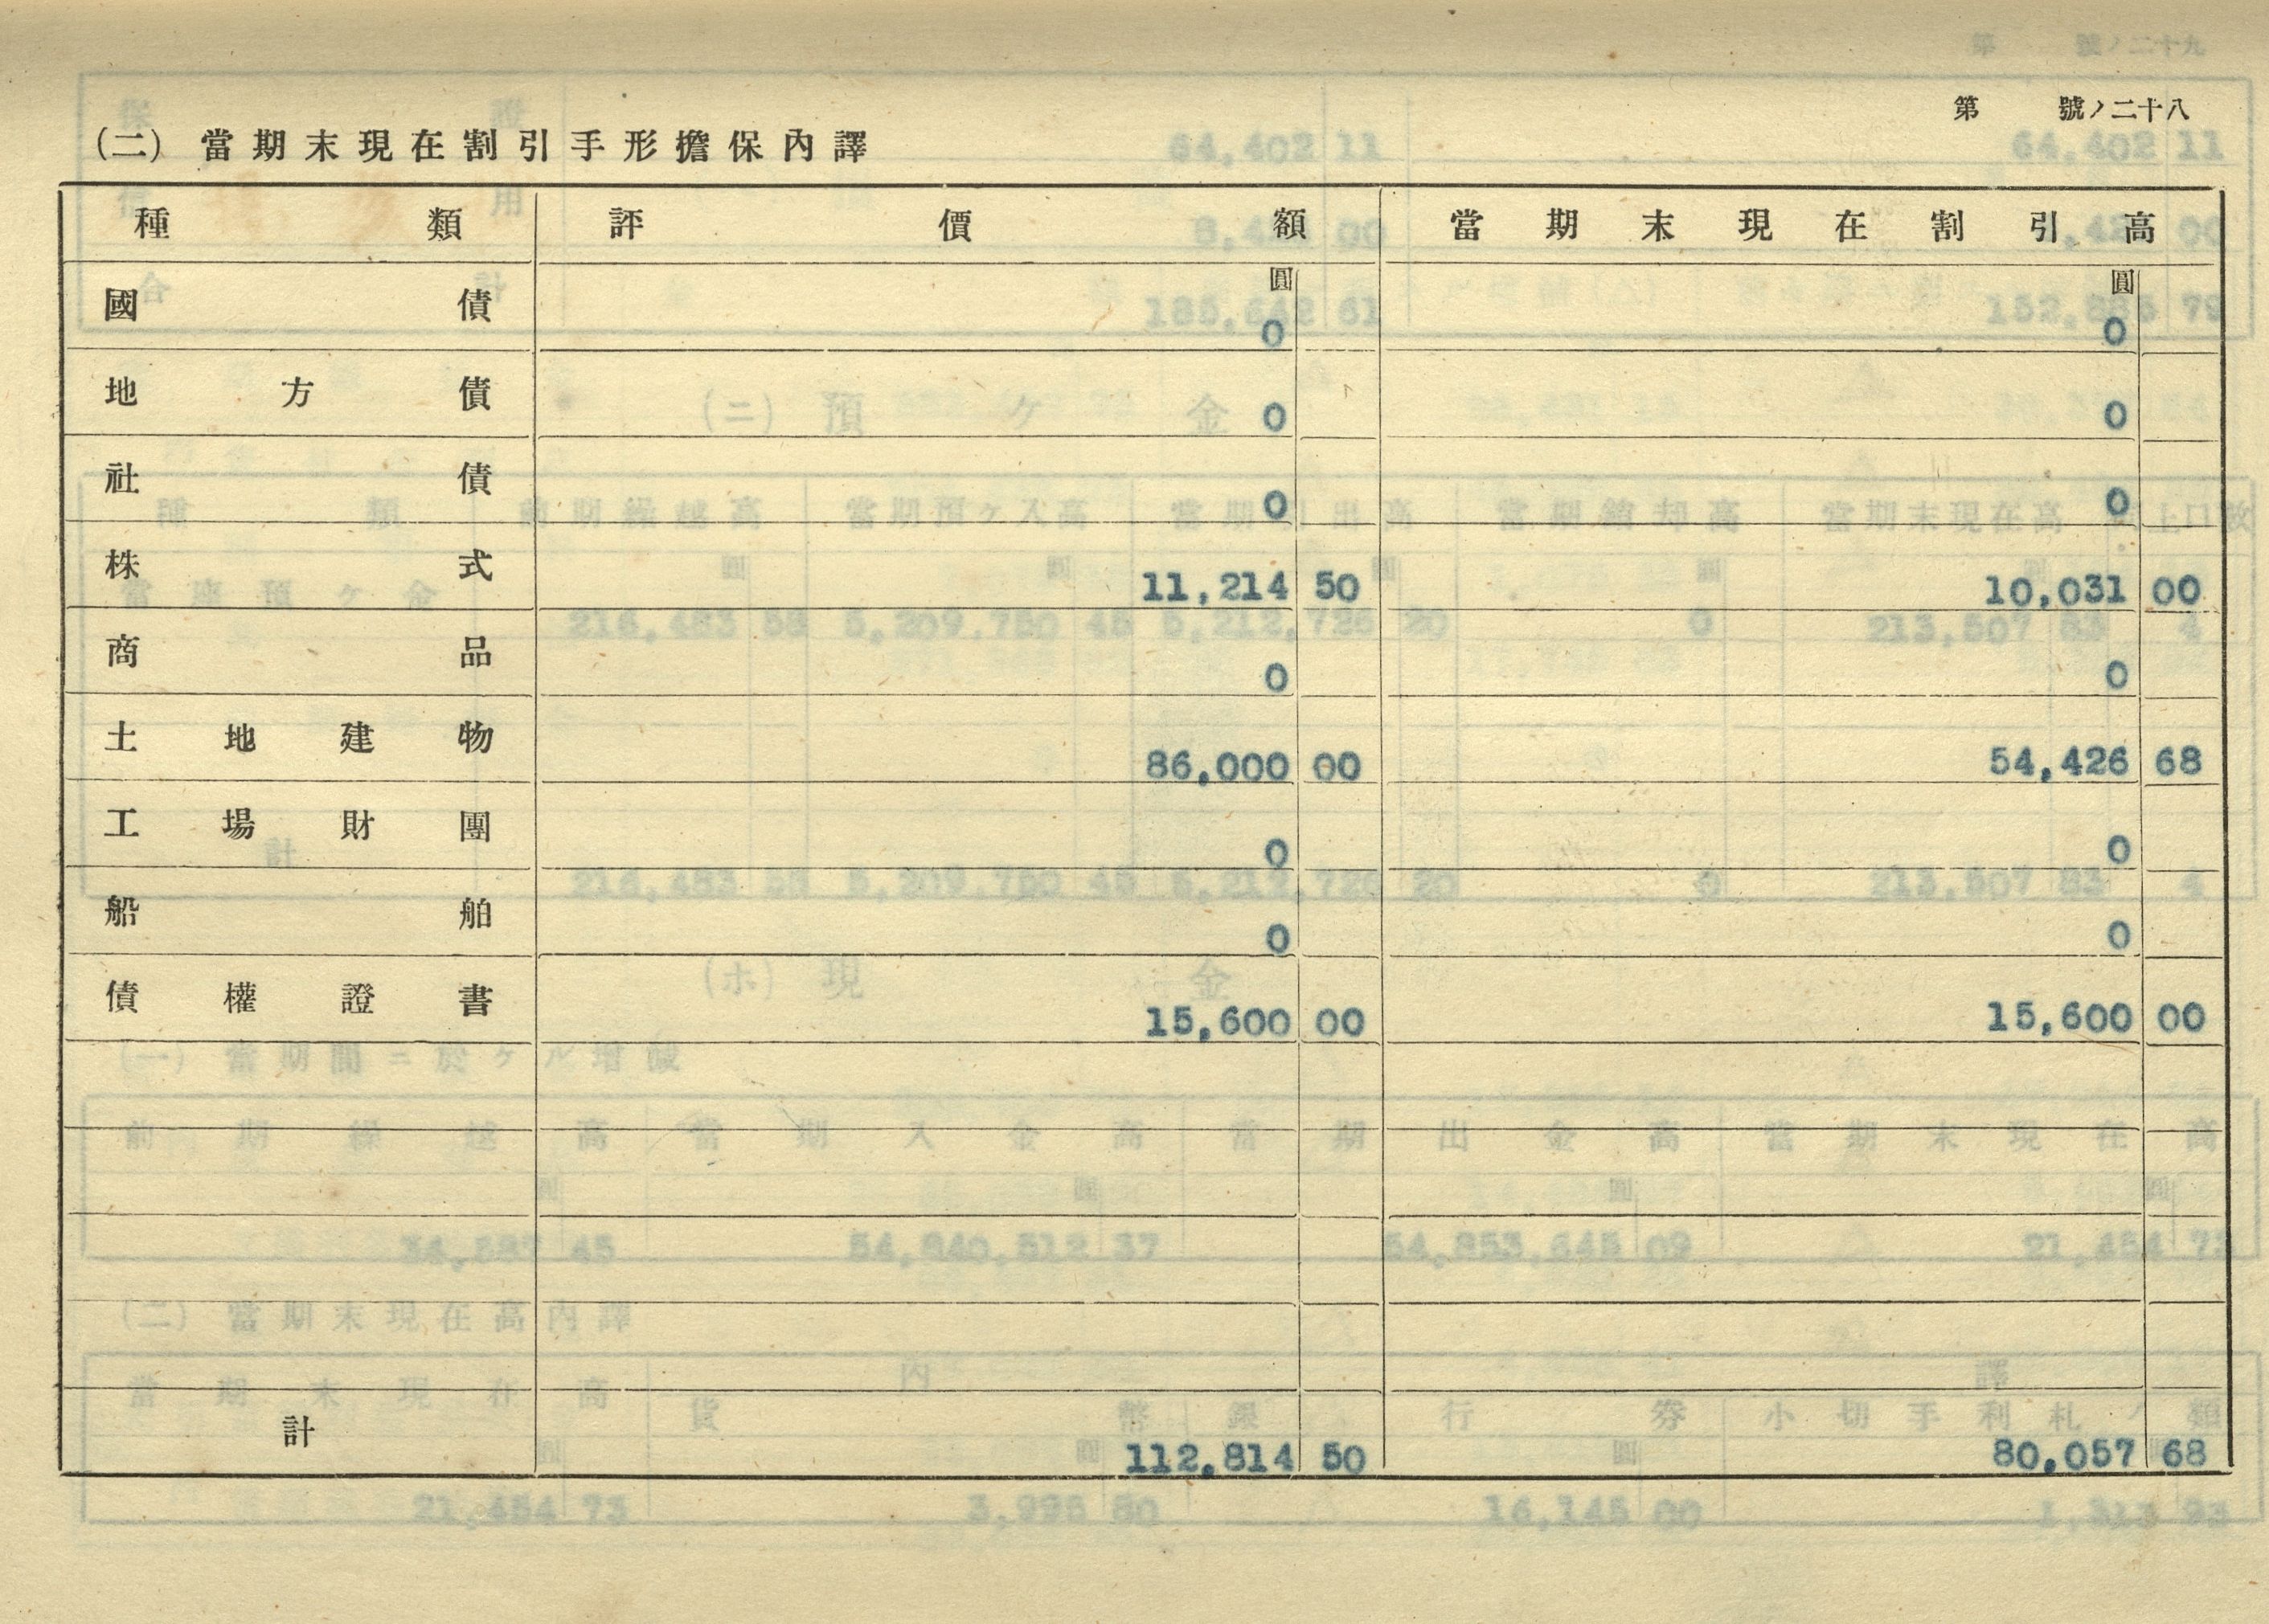 第　　號ノ二十八
(二) 當期末現在割引手形擔保內譯
種類　評價額　當期末現在割引高
國債　圓 0　圓 0
地方債　0　0
社債　0　0
株式　11,214 50　10,031 00
商品　0　0
土地建物　86,000 00　54,426 68
工場財團　0　0
船舶　0　0
債權證書　15,600 00　15,600 00
計　112,814 50　80,057 68